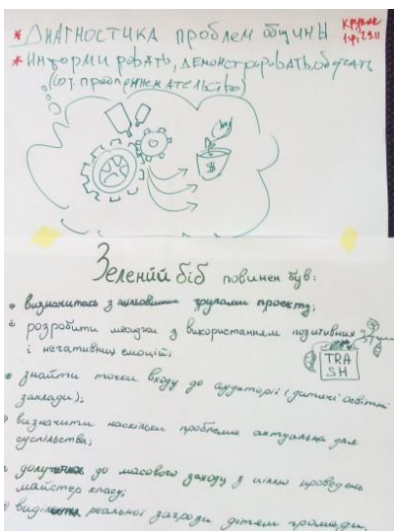 * ДИАГНОСТИКА ПРОБЛЕМ ОБЩИНЫ
* ИНФОРМИРОВАТЬ, ДЕМОНСТРИРОВАТЬ, обучать
(от пред
$
Зелений біб повинен був:
• визначитись з цільовими групами проєкту;
• розробити меседжі з використанням позитивних
і негативних емоцій;
TRA
SH
• знайти точки входу до аудиторії (дитячі освітні
заклади);
• визначити наскільки проблема актуальна для
суспільства;
• до масового заходу з ціллю проведень
майстер класу;
реальної загрози дітям громади.